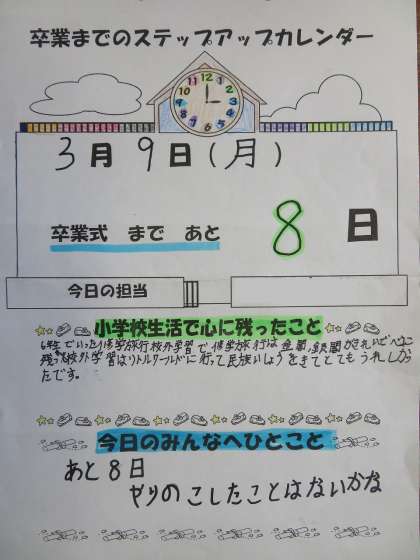 卒業までのステップアップカレンダー
12
1
2
3
4
5
6
7
8
9
10
11
3月9日(月)
卒業式 まで あと 8 日
今日の担当
小学校生活で心に残ったこと
6年でいった修学旅行校外学習で修学旅行は金閣、銀閣がきれいで
校外学習はリトルワールドに行って民族いしょうをきてとてもうれしか
ったです。
今日のみんなへひとこと
あと8日
やりのこしたことはないかな